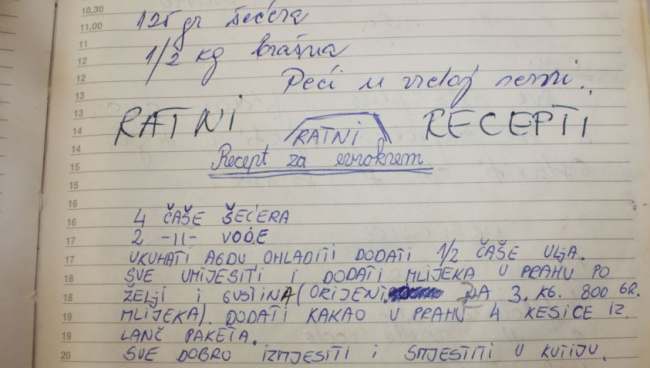 10,30
125 gr šećera
11,00
11
1/2 kg brašna
12
12
Peći u vreloj rerni..
13
13
RATNI RATNI RECEPTI
14
14
Recept za eurokrem
15
15
16
4 ČAŠE ŠEĆERA
16
2 -11- VODE
17
UKUHATI AGDU OHLADITI DODATI 1/2 ČAŠE ULJA.
17
SVE UMIJESITI I DODATI MLIJEKA U PRAHU PO
18
ŽELJI I GUSTINA (ORIJENI NA 3. KG. 800 GR.
18
MLIJEKA). DODATI KAKAO U PRAHU 4 KESICE IZ
19
LANČ PAKETA.
19
SVE DOBRO IZMJESITI I SMJESTITI U KUTIJU.
20